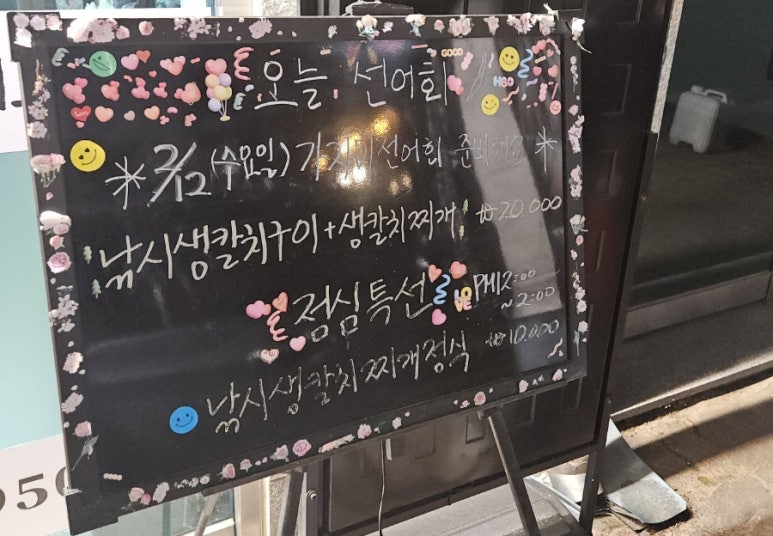 오늘 선어회
GOOD
HBO
* 2/12 (수요일) 가자미선어회 준비해요 *
낚시생칼치구이+생칼치찌개 ₩20.000
점심특선 LOVE PM12:00
~2:00
낚시생칼치찌개정식 ₩10.000
950